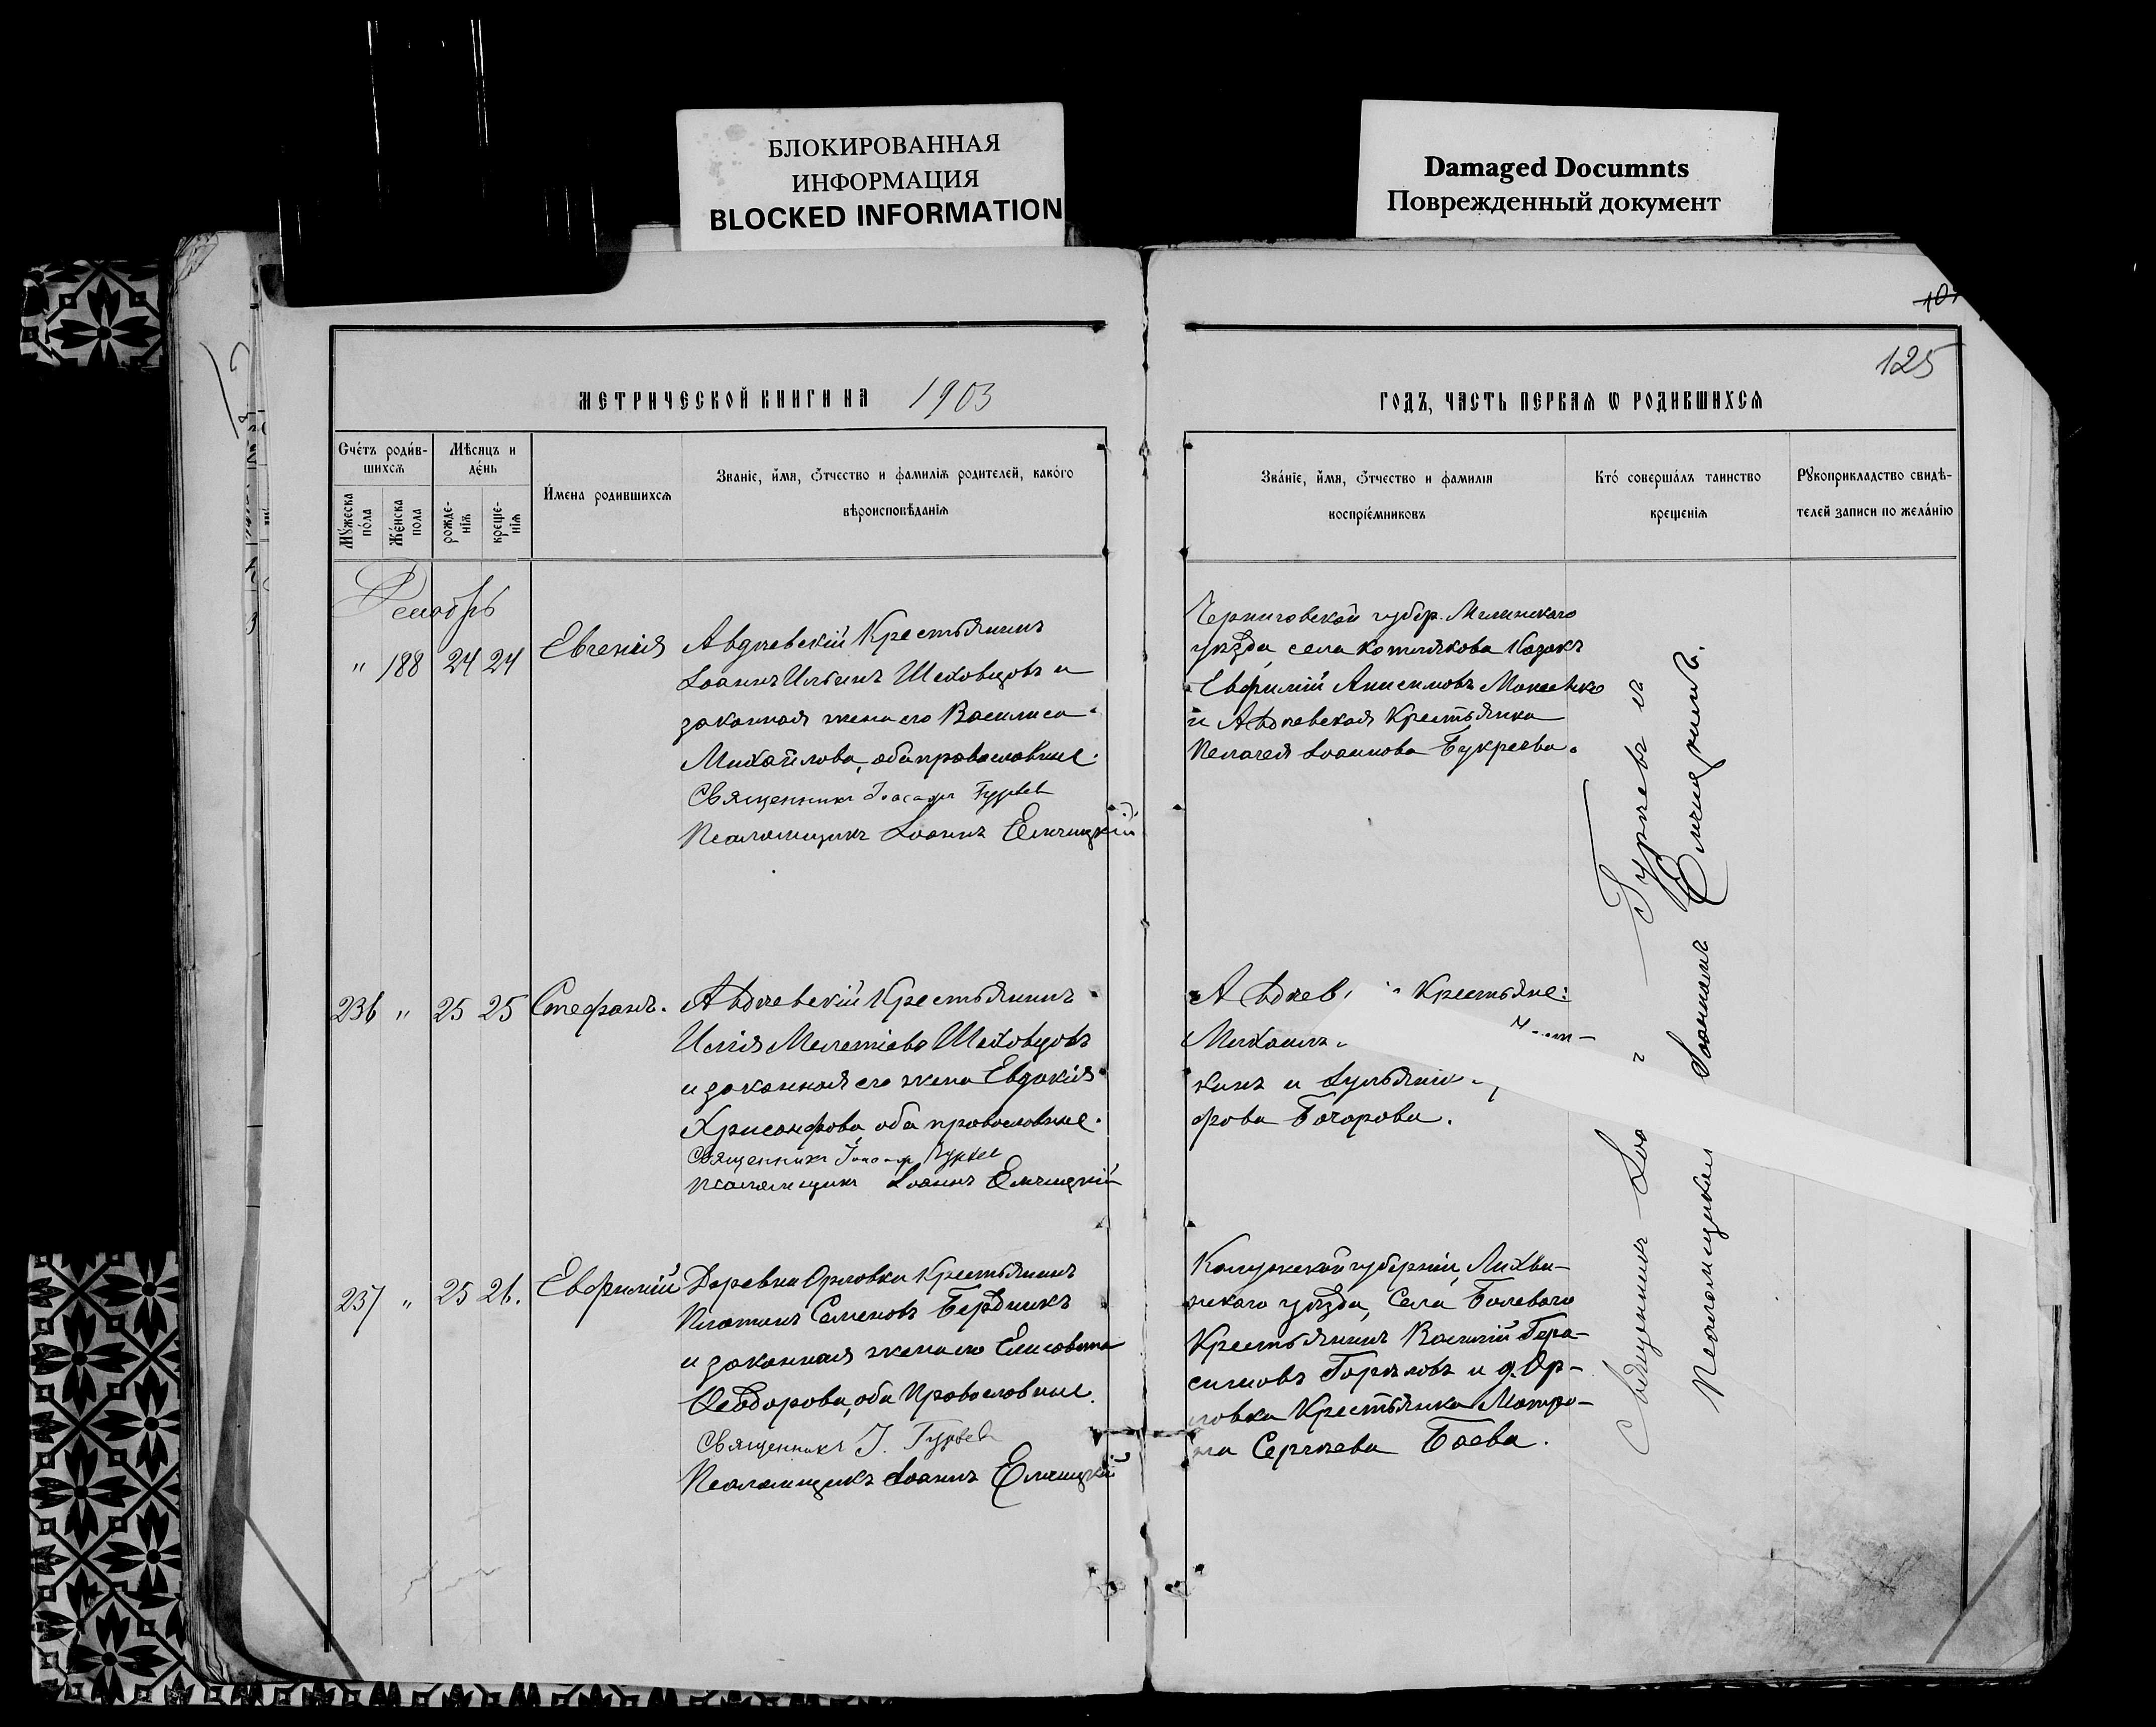 БЛОКИРОВАННАЯ
ИНФОРМАЦИЯ
BLOCKED INFORMATION
Damaged Documnts
Поврежденный документ
125
МЕТРИЧЕСКОЙ КНИГИ НА 1903
ГОДЪ, ЧАСТЬ ПЕРВАЯ Ѡ РОДИВШИХСЯ
Счетъ родив-
шихся
Мужеска
пола
Женска
пола
Мѣсяцъ и
день
рожде-
нія
креще-
нія
Имена родившихся
Званіе, имя, отчество и фамилія родителей, какого
вѣроисповѣданія
Званіе, имя, отчество и фамилія
воспріемниковъ
Кто совершалъ таинство
крещенія
Рукоприкладство свидѣ-
телей записи по желанію
" 188 24 24
Евгенія
Авдѣевскій Крестьянинъ
Іоаннъ Ильинъ Шеховцовъ и
законная жена его Василиса
Михайлова, оба православные.
Священникъ Гурьев
Псаломщикъ Іоаннъ
Черниговской губер.
уѣзда, села Казакъ
Евфимій Анисимовъ
и Авдѣевская Крестьянка
Пелагея Іоаннова Букреева.
236 " 25 25
Стефанъ.
Авдѣевскій Крестьянинъ
Илія Мелетіевъ Шеховцовъ
и законная его жена Евдокія
Хрисанфова, оба православные.
Священникъ Гурьев
Псаломщикъ Іоаннъ
Крестьяне:
Михаилъ
кинъ и
фова Бочарова.
237 " 25 26.
Евфимій
Деревни Орловки Крестьянинъ
Платонъ Семеновъ Бердникъ
и законная жена его Елисавета
Ѳеодорова, оба Православные.
Священникъ І. Гурьев
Псаломщикъ Іоаннъ
Калужской губерніи, Лихви-
нскаго уѣзда, Села
Крестьянинъ Василій Гера-
симовъ Горѣловъ и д. Ор-
ловка Крестьянка Матро-
на Сергѣева Боева.
Священникъ Гурьевъ и
Псаломщикъ Іоаннъ